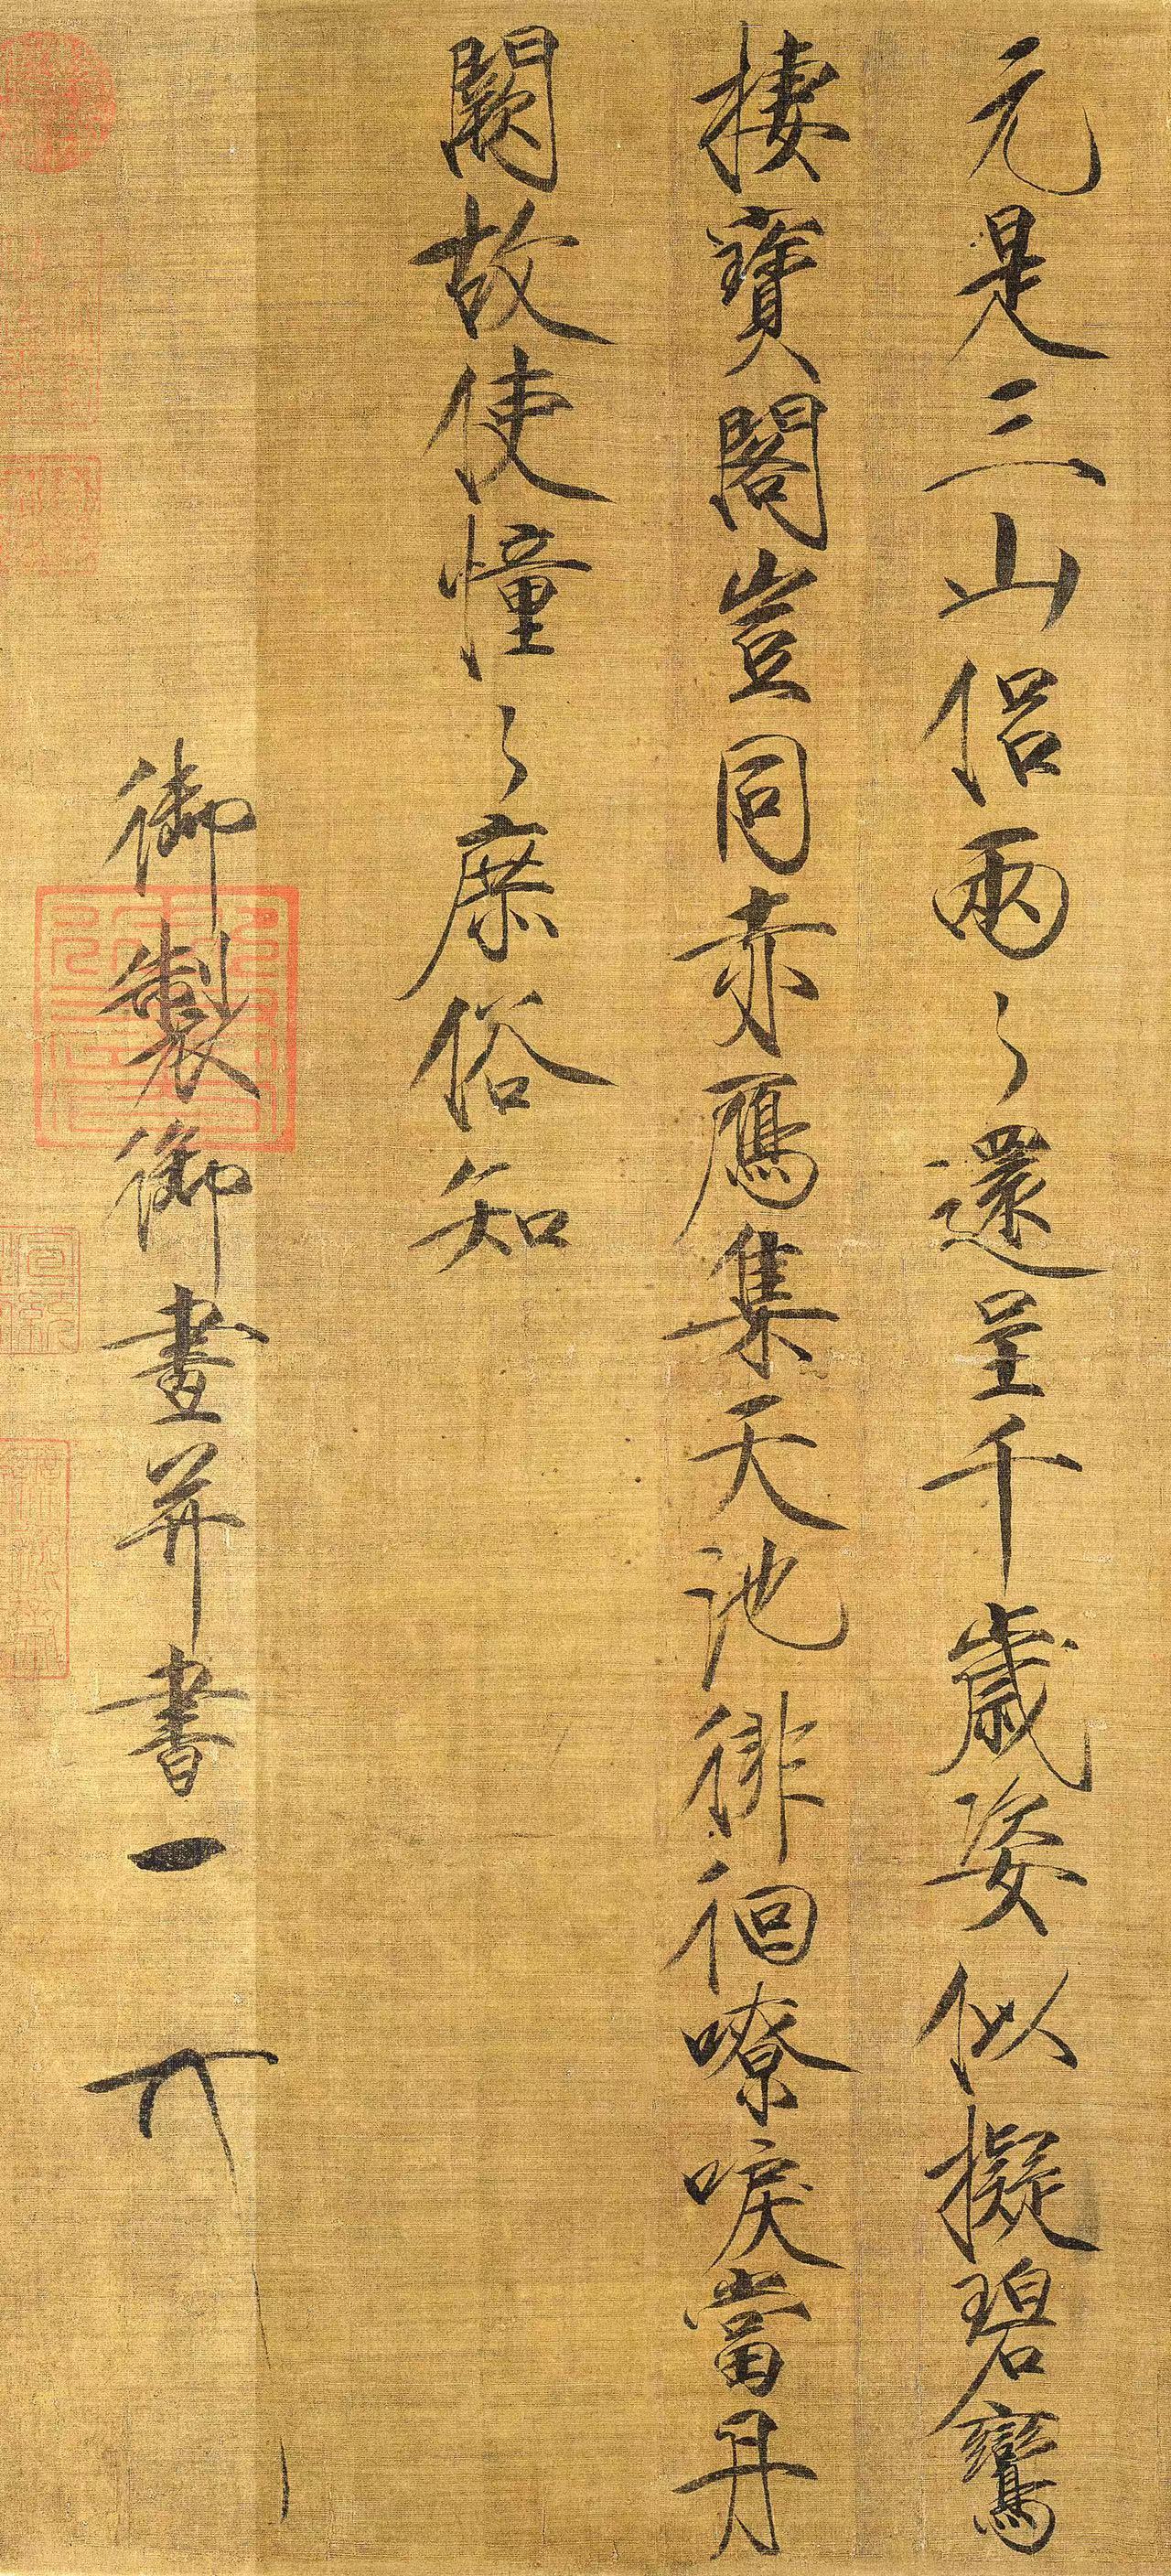 元是三山侣兩〻還呈千歳姿似擬碧鸞
棲寳閣豈同赤鴈集天池徘徊嘹唳當丹
闕故使憧〻庶俗知
御製御畫并書